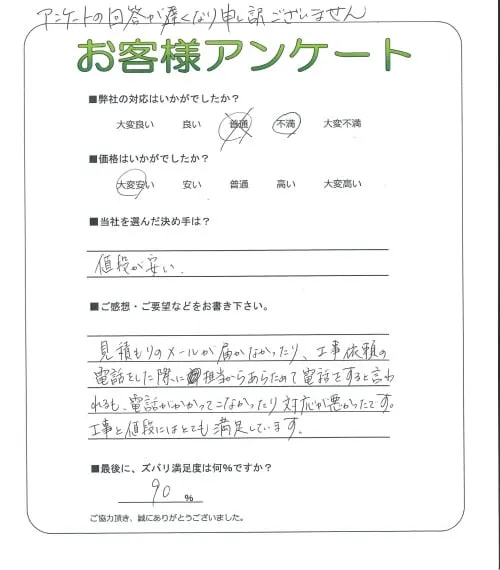 アンケートの回答が遅くなり申し訳ございません
お客様アンケート
■弊社の対応はいかがでしたか？
大変良い 良い 普通 不満 大変不満
■価格はいかがでしたか？
大変安い 安い 普通 高い 大変高い
■当社を選んだ決め手は？
値段が安い.
■ご感想・ご要望などをお書き下さい。
見積もりのメールが届かなかったり、工事依頼の
電話をした際に担当からあらためて電話をすると言わ
れるも、電話がかかってこなかったり対応が悪かったです。
工事と値段にはとても満足しています.
■最後に、ズバリ満足度は何%ですか？
90 %
ご協力頂き、誠にありがとうございました。